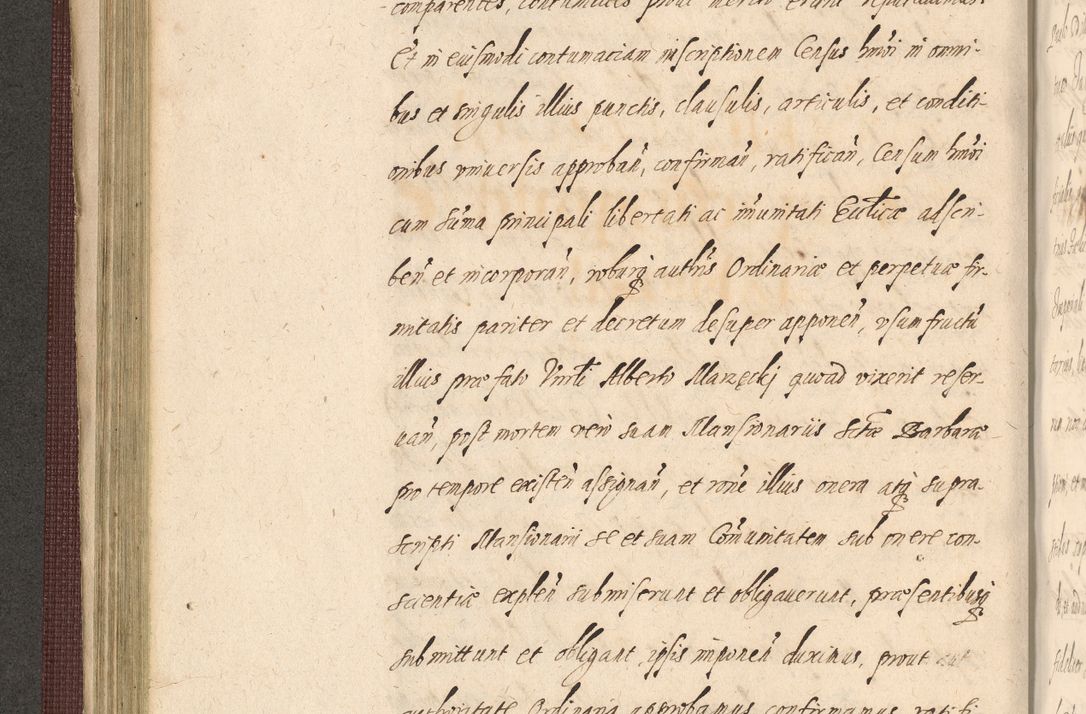 comparentes, contumaces prout merito erant reputandimus.
Et in eiusmodi contumaciam inscriptionem Census hmōi in omni-
bus et singulis illius punctis, clausulis, articulis, et conditi-
onibus vniuersis approbañ, confirmañ, ratificañ, Censum hmōi
cum sūma principali libertati ac im̄unitati Eccłicæ adscri-
beñ et incorporañ, roburq́ authr̄is Ordinariæ et perpetuæ fir-
mitatis pariter et decretum desuper apponeñ, vsum fructū
illius præfato Vnrłi Alberto Marzęckj quoad vixerit reser-
uañ, post mortem vero suam Mansionariis Sctæ Barbaræ
pro tempore existeñ assignañ, et rōne illius onera atq́ supra-
scripti Mansionarii se et suam Com̄unitatem sub onere con-
scientiæ expleñ submiserunt et obligauerunt, præsentibusq́
submittunt et obligant ipsis imponeñ duximus, prout
authoritate Ordinaria approbamus confirmamus ratifi-